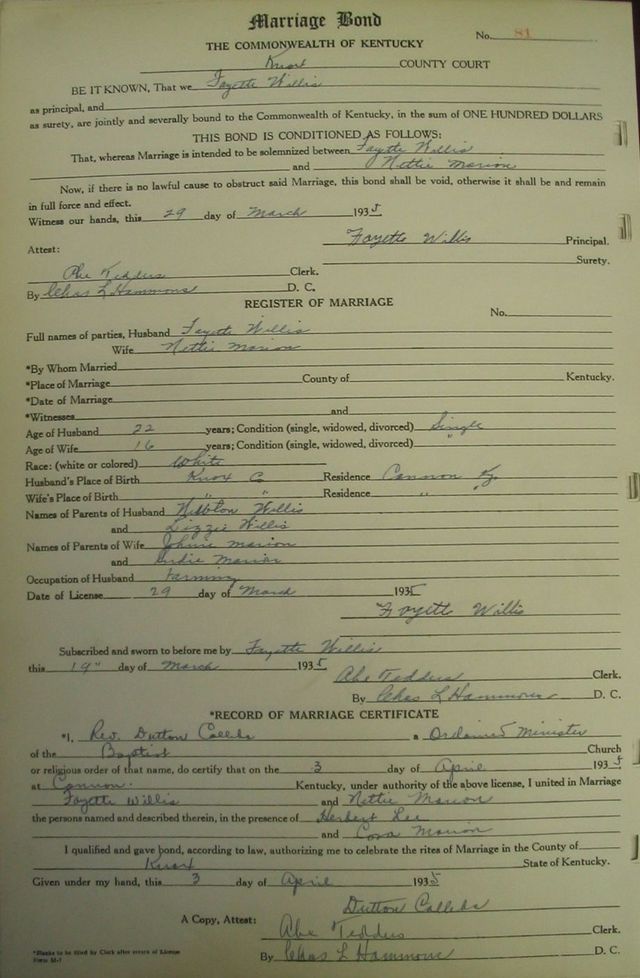 Marriage Bond
No. 81
THE COMMONWEALTH OF KENTUCKY
Knox COUNTY COURT
BE IT KNOWN, That we Fayette Willis
as principal, and
as surety, are jointly and severally bound to the Commonwealth of Kentucky, in the sum of ONE HUNDRED DOLLARS
THIS BOND IS CONDITIONED AS FOLLOWS:
That, whereas Marriage is intended to be solemnized between Fayette Willis
and Nettie Marion
Now, if there is no lawful cause to obstruct said Marriage, this bond shall be void, otherwise it shall be and remain
in full force and effect.
Witness our hands, this 29 day of March 1935
Fayette Willis Principal.
Attest: Surety.
Abe Tedders Clerk.
By Chas L Hammons D. C.
REGISTER OF MARRIAGE
No.
Full names of parties, Husband Fayette Willis
Wife Nettie Marion
*By Whom Married
*Place of Marriage County of Kentucky.
*Date of Marriage
*Witnesses and
Age of Husband 22 years; Condition (single, widowed, divorced) Single
Age of Wife 16 years; Condition (single, widowed, divorced) "
Race: (white or colored) White
Husband's Place of Birth Knox Co Residence Cannon Ky.
Wife's Place of Birth " " Residence " "
Names of Parents of Husband Newton Willis
and Lizzie Willis
Names of Parents of Wife Johnie Marion
and Marion
Occupation of Husband Farming
Date of License 29 day of March 1935
Fayette Willis
Subscribed and sworn to before me by Fayette Willis
this 19" day of March 1935
Abe Tedders Clerk.
By Chas L Hammons D. C.
*RECORD OF MARRIAGE CERTIFICATE
*I, Rev. Dutton Callebs a Ordained Minister
of the Baptist Church
or religious order of that name, do certify that on the 3 day of April 1935
at Cannon. Kentucky, under authority of the above license, I united in Marriage
Fayette Willis and Nettie Marion
the persons named and described therein, in the presence of Herbert Lee
and Cora Marion
I qualified and gave bond, according to law, authorizing me to celebrate the rites of Marriage in the County of
Knox State of Kentucky.
Given under my hand, this 3 day of April 1935
Dutton Callebs
A Copy, Attest: Abe Tedders Clerk.
By Chas L Hammons D. C.
*Blanks to be filled by Clerk after return of License